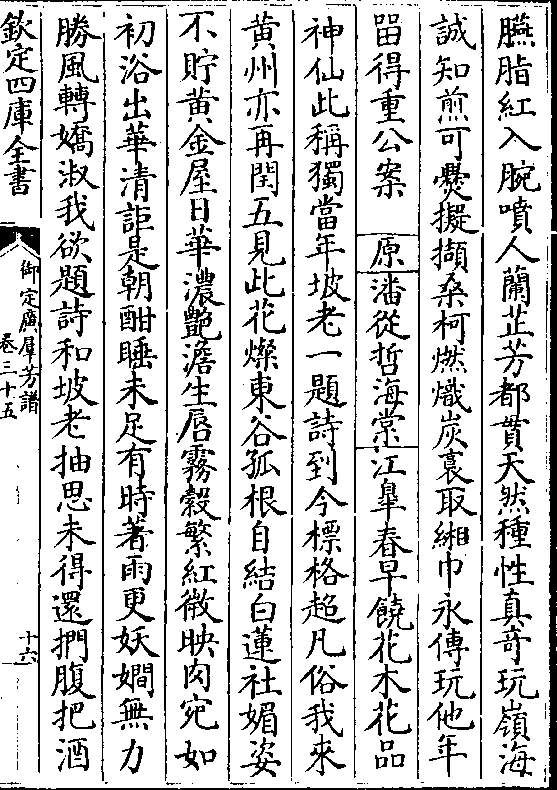 臙脂紅入腕噴人蘭芷芳都貫天然種性真奇玩嶺海
誠知煎可爨擬擷桑柯燃熾炭裛取緗巾永傳玩他年
畱得重公案 原潘從哲海棠江臯春早饒花木花品
神仙此稱獨當年坡老一題詩到今標格超凡俗我來
黄州亦再閏五見此花燦東谷孤根自結白蓮社媚姿
不貯黄金屋日華濃艷澹生唇霧縠繁紅微映肉宛如
初浴出華清詎是朝酣睡未足有時著雨更妖嫺無力
勝風轉嬌淑我欲題詩和坡老抽思未得還捫腹把酒
欽定四庫全書
御定廣羣芳譜
卷三十五
十六